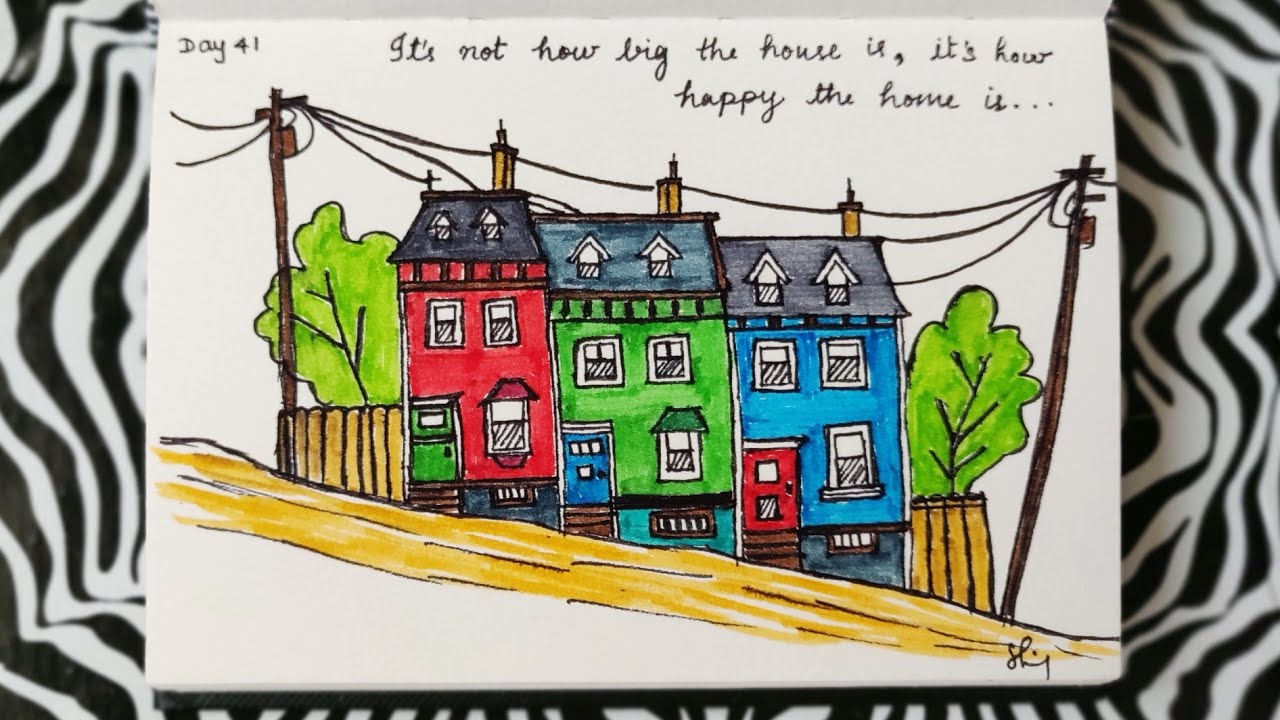 Day 41
It's not how big the house is, it's how
happy the home is...